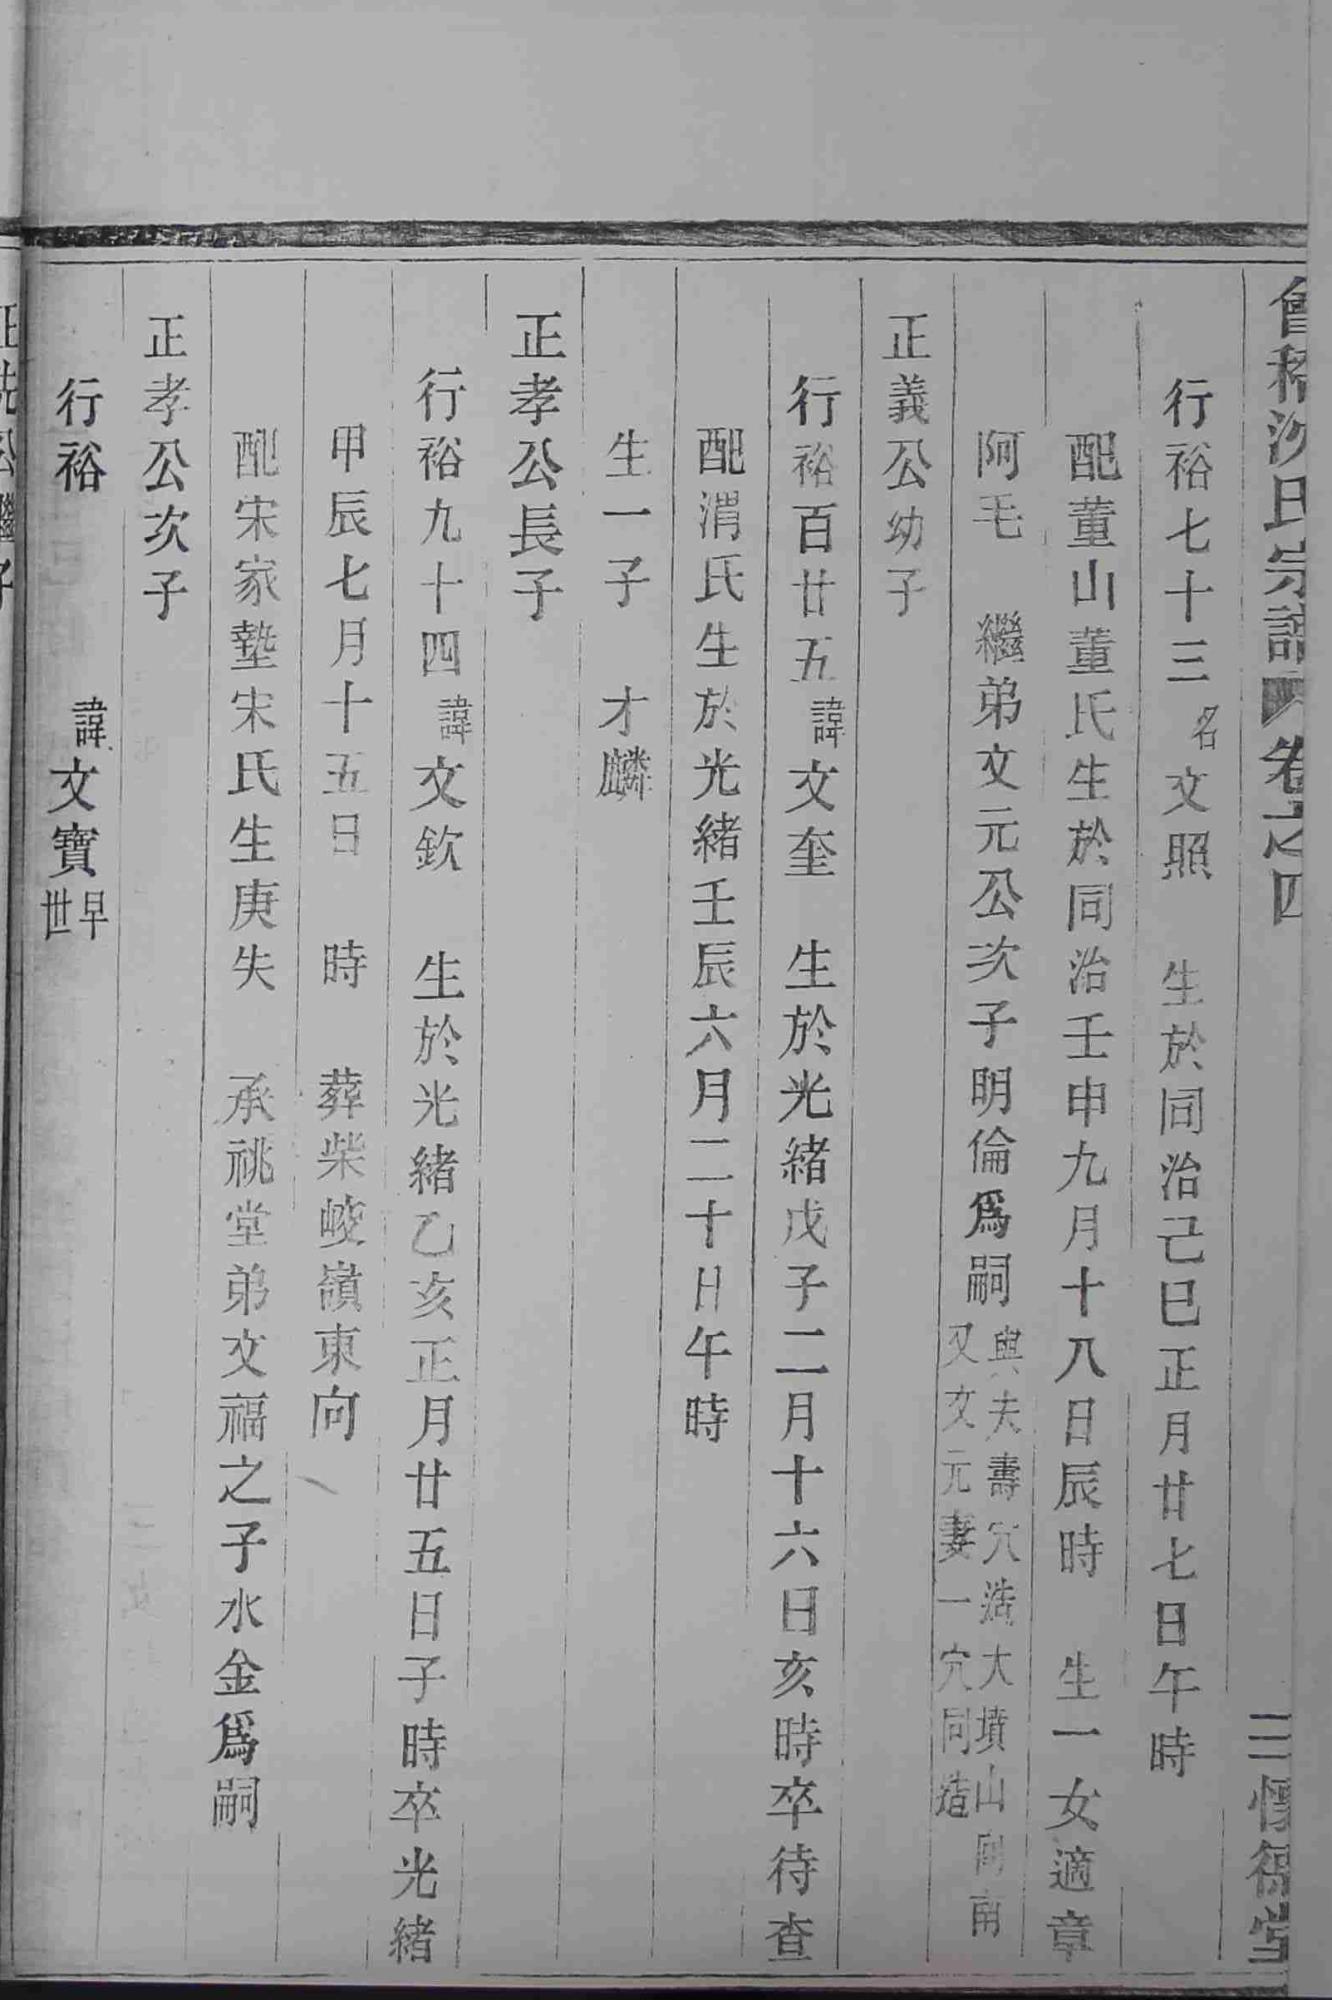 會稽沈氏宗譜 卷之四 三 懷德堂
行裕七十三 名文照 生於同治己巳正月廿七日午時
配董山董氏生於同治壬申九月十八日辰時 生一女適章
阿毛 繼弟文元公次子明倫爲嗣 與夫壽穴造大墳山向南
又文元妻一穴同造
正義公幼子
行裕百廿五 諱文奎 生於光緒戊子二月十六日亥時卒待查
配渭氏生於光緒壬辰六月二十日午時
生一子 才麟
正孝公長子
行裕九十四 諱文欽 生於光緒乙亥正月廿五日子時卒光緒
甲辰七月十五日 時 葬柴嶺東向
配宋家墊宋氏生庚失 承祧堂弟文福之子水金爲嗣
正孝公次子
行裕 諱文寶 早世
公繼子